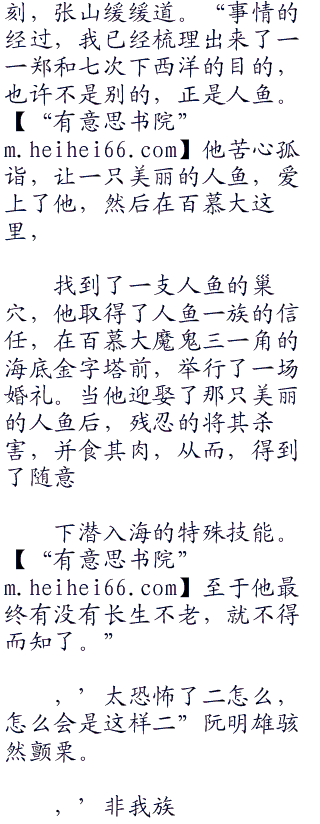 刻，张山缓缓道。“事情的
经过，我已经梳理出来了一
一郑和七次下西洋的目的，
也许不是别的，正是人鱼。
【“有意思书院”
m.heihei66.com】他苦心孤
诣，让一只美丽的人鱼，爱
上了他，然后在百慕大这
里，
找到了一支人鱼的巢
穴，他取得了人鱼一族的信
任，在百慕大魔鬼三一角的
海底金字塔前，举行了一场
婚礼。当他迎娶了那只美丽
的人鱼后，残忍的将其杀
害，并食其肉，从而，得到
了随意
下潜入海的特殊技能。
【“有意思书院”
m.heihei66.com】至于他最
终有没有长生不老，就不得
而知了。”
，’太恐怖了二怎么，
怎么会是这样二”阮明雄骇
然颤栗。
，’非我族